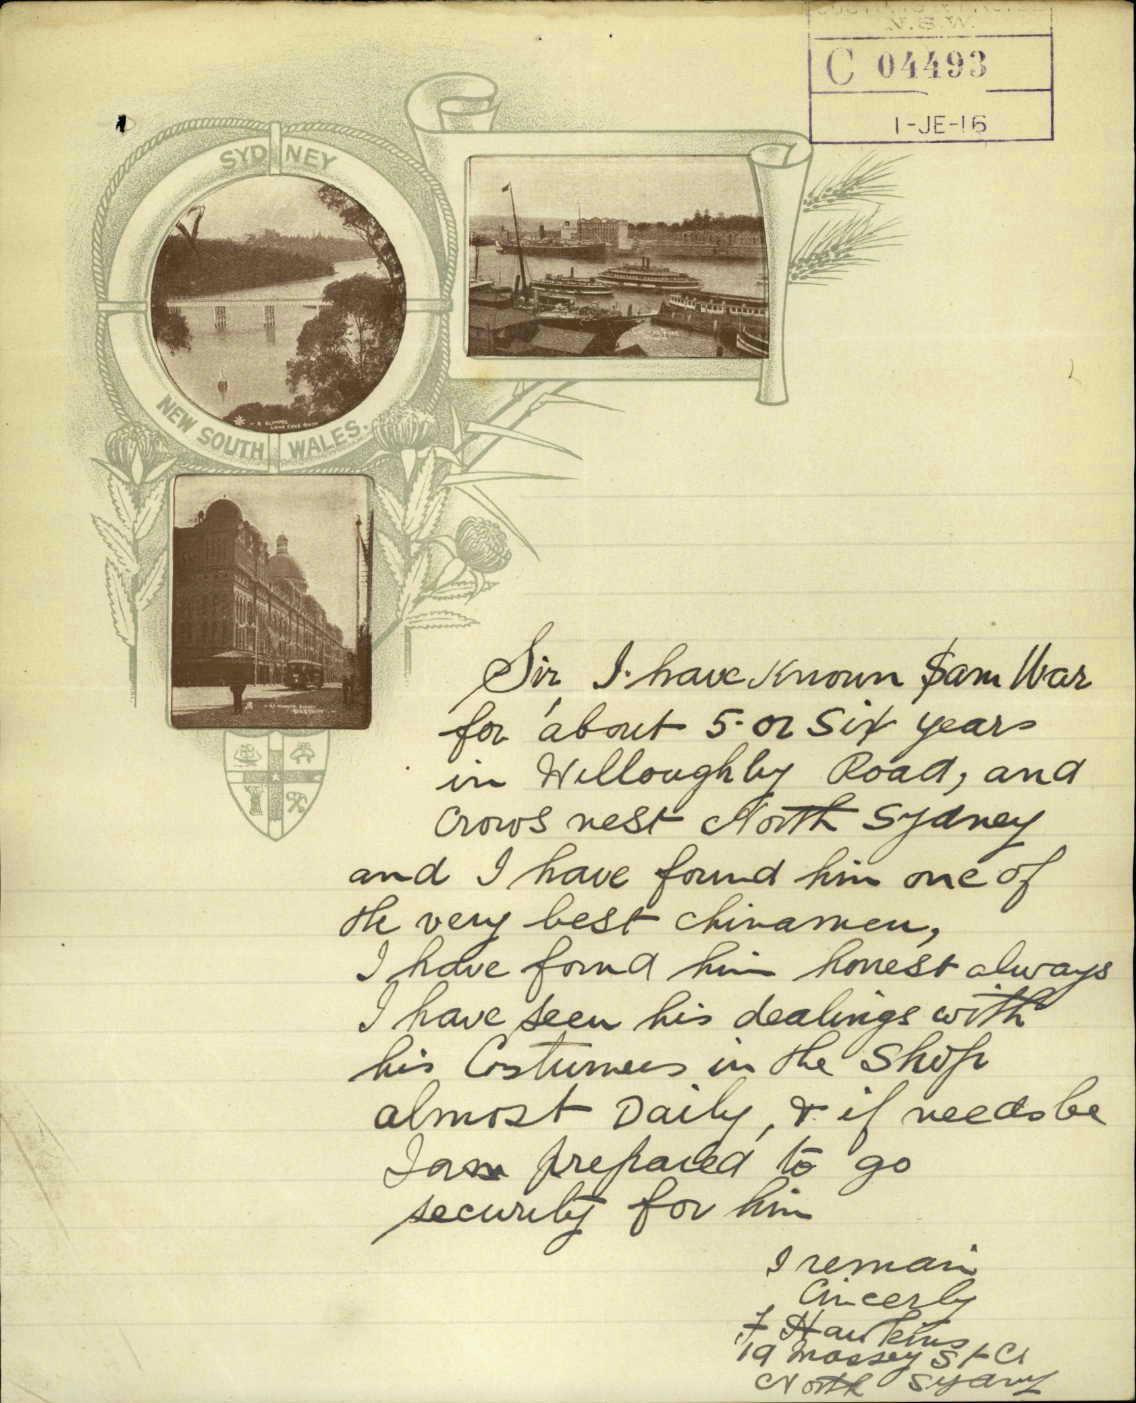 N.S.W.
C 04493
1-JE-16
SYDNEY
NEW SOUTH WALES.
Sir, I have known Sam War
for about 5 or Six years
in Willoughby Road, and
Crows nest North Sydney
and I have found him one of
the very best chinamen,
I have found him honest always
I have seen his dealings with
his Costumers in the Shop
almost Daily, & if needs be
I am prepared to go
security for him
I remain
Sincerly
F Hawkins
19 Massey St
North Sydney